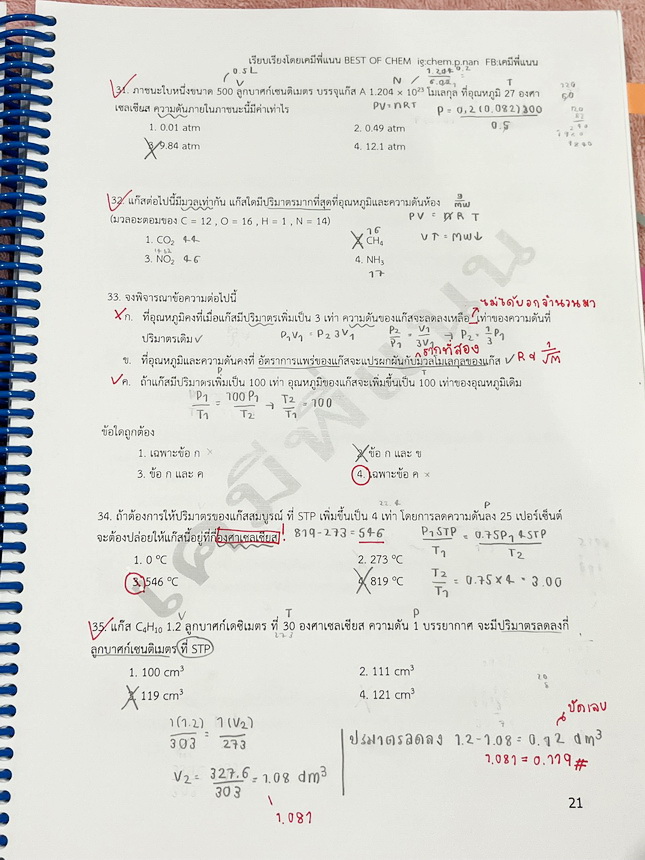 เรียบเรียงโดยเคมีพี่แนน BEST OF CHEM ig:chem.p.nan FB:เคมีพี่แนน
0.5 L
V N 1.204 T
31. ภาชนะใบหนึ่งขนาด 500 ลูกบาศก์เซนติเมตร บรรจุแก๊ส A 1.204 × 10²³ โมเลกุล ที่อุณหภูมิ 27 องศา
เซลเซียส ความดันภายในภาชนะนี้มีค่าเท่าไร PV = nRT P = 0,2 (0,082) 300
0.5
1. 0.01 atm 2. 0.49 atm
3. 9.84 atm 4. 12.1 atm
32. แก๊สต่อไปนี้มีมวลเท่ากัน แก๊สใดมีปริมาตรมากที่สุดที่อุณหภูมิและความดันห้อง g/MW
(มวลอะตอมของ C = 12 , O = 16 , H = 1 , N = 14) PV = nRT
16
1. CO₂ 44 2. CH₄ V↑ = MW↓
3. NO₂ 46 4. NH₃
17
33. จงพิจารณาข้อความต่อไปนี้
ไม่ได้บอกจำนวนมา
ก. ที่อุณหภูมิคงที่เมื่อแก๊สมีปริมาตรเพิ่มเป็น 3 เท่า ความดันของแก๊สจะลดลงเหลือ เท่าของความดันที่
ปริมาตรเดิม ✓ P₁V₁ = P₂3V₁ P₂/P₁ = V₁/3V₁ → P₂ = 1/3 P₁
รากที่สอง
ข. ที่อุณหภูมิและความดันคงที่ อัตราการแพร่ของแก๊สจะแปรผกผันกับมวลโมเลกุลของแก๊ส ✓ R α 1/√M
P T
ค. ถ้าแก๊สมีปริมาตรเพิ่มเป็น 100 เท่า อุณหภูมิของแก๊สจะเพิ่มขึ้นเป็น 100 เท่าของอุณหภูมิเดิม
P₁/T₁ = 100P₁/T₂ → T₂/T₁ = 100
ข้อใดถูกต้อง
1. เฉพาะข้อ ก × 2. ข้อ ก และ ข
3. ข้อ ก และ ค 4. เฉพาะข้อ ค ×
22.4 P
34. ถ้าต้องการให้ปริมาตรของแก๊สสมบูรณ์ ที่ STP เพิ่มขึ้นเป็น 4 เท่า โดยการลดความดันลง 25 เปอร์เซ็นต์
จะต้องปล่อยให้แก๊สนี้อยู่ที่กี่องศาเซลเซียส ! 819-273 = 546 P₁STP/T₁ = 0.75P₁4STP/T₂
1. 0 °C 2. 273 °C
3. 546 °C 4. 819 °C T₂/T₁ = 0.75×4 = 3.00
V T P
35. แก๊ส C₄H₁₀ 1.2 ลูกบาศก์เดซิเมตร ที่ 30 องศาเซลเซียส ความดัน 1 บรรยากาศ จะมีปริมาตรลดลงกี่
273
ลูกบาศก์เซนติเมตร ที่ STP
1. 100 cm³ 2. 111 cm³
3. 119 cm³ 4. 121 cm³
ปัดเลข
1(1.2)/303 = 1(V₂)/273
ปริมาตรลดลง 1.2-1.08 = 0.12 dm³
1.081 = 0.119 #
V₂ = 327.6/303 = 1.08 dm³
1.081
21